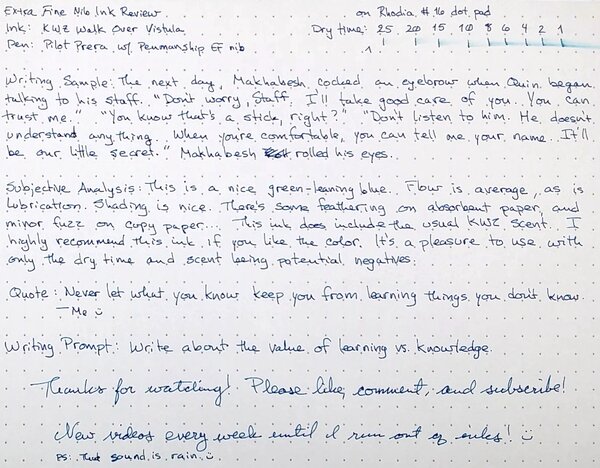 Extra Fine Nib Ink Review on Rhodia #16 dot pad
Ink: KWZ Walk Over Vistula Dry time: 25 20 15 10 8 6 4 2 1
Pen: Pilot Prera w/ Penmanship EF nib
Writing Sample: The next day, Makhabesh cocked an eyebrow when Quin began
talking to his staff. "Don't worry, Staff, I'll take good care of you. You can
trust me." "You know that's a stick, right?" "Don't listen to him. He doesn't
understand anything. When you're comfortable, you can tell me your name. It'll
be our little secret." Makhabesh rolled his eyes.
Subjective Analysis: This is a nice green-leaning blue. Flow is average, as is
lubrication. Shading is nice. There's some feathering on absorbent paper, and
minor fuzz on copy paper... This ink does include the usual KWZ scent. I
highly recommend this ink if you like the color. It's a pleasure to use with
only the dry time and scent being potential negatives.
Quote: Never let what you know keep you from learning things you don't know.
- Me :)
Writing Prompt: Write about the value of learning vs. knowledge.
Thanks for watching! Please like, comment, and subscribe!
New videos every week until I run out of inks! :)
PS: That sound is rain. :)